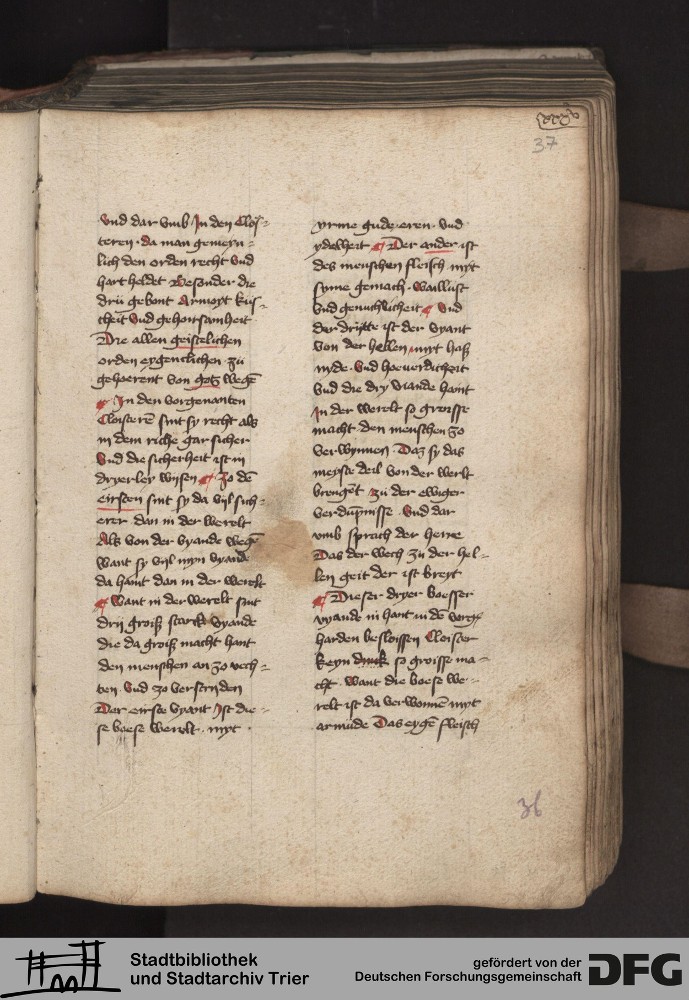 37
vnd dar vmb In den Cloi-
teren · da man gemeyn-
lich den orden recht vnd
hart heldet Besonder die
drü gebont Armoyt kus-
cheit vnd gehorsamheit
Die allen geistelichen
orden eygentlichen zü
gehoerent von gotz wegē
In den vorgenanten
Cloisterē sint sy recht als
in dem riche gar sicher
Vnd die sicherheit ist in
dryerley wisen zo dē
eirsten sint sy da vijl sich-
erer dan in der werelt
Als von der vyande wegē
want sy vijl myn vyande
da haint dan in der werelt
Want in der werelt sint
drij groiß starck vyande
die da groiß macht hant
den menschen an zo vech-
ten · vnd zo versynden
Der eirste vyant Ist die-
se boese werelt · myt
yrme gude · eren · vnd
ydelheit Der ander ist
des menschen fleisch myt
syme gemach · wallust
vnd genuchlicheit vnd
der drytte ist der vyant
von der hellen myt haß
nyde · vnd hoeuerdicheit
vnd die dry viande haint
In der werelt so groisse
macht den menschen zo
verwynnen · Daz sy das
meyste deil von der werlt
brengēt zu der ewiger
verdüpnisse · vnd dar
vmb sprach der herre
Das der wech zu der hel-
len geit der ist breyt
Dieser dryer boesser
vyande in hant in dē vorg
harden besloissen Cloister
keyn so groisse ma-
cht · want die boese we-
relt ist da verwonnē myt
armüde Das eygē fleisch
36
Stadtbibliothek
und Stadtarchiv Trier
gefördert von der
Deutschen Forschungsgemeinschaft
DFG